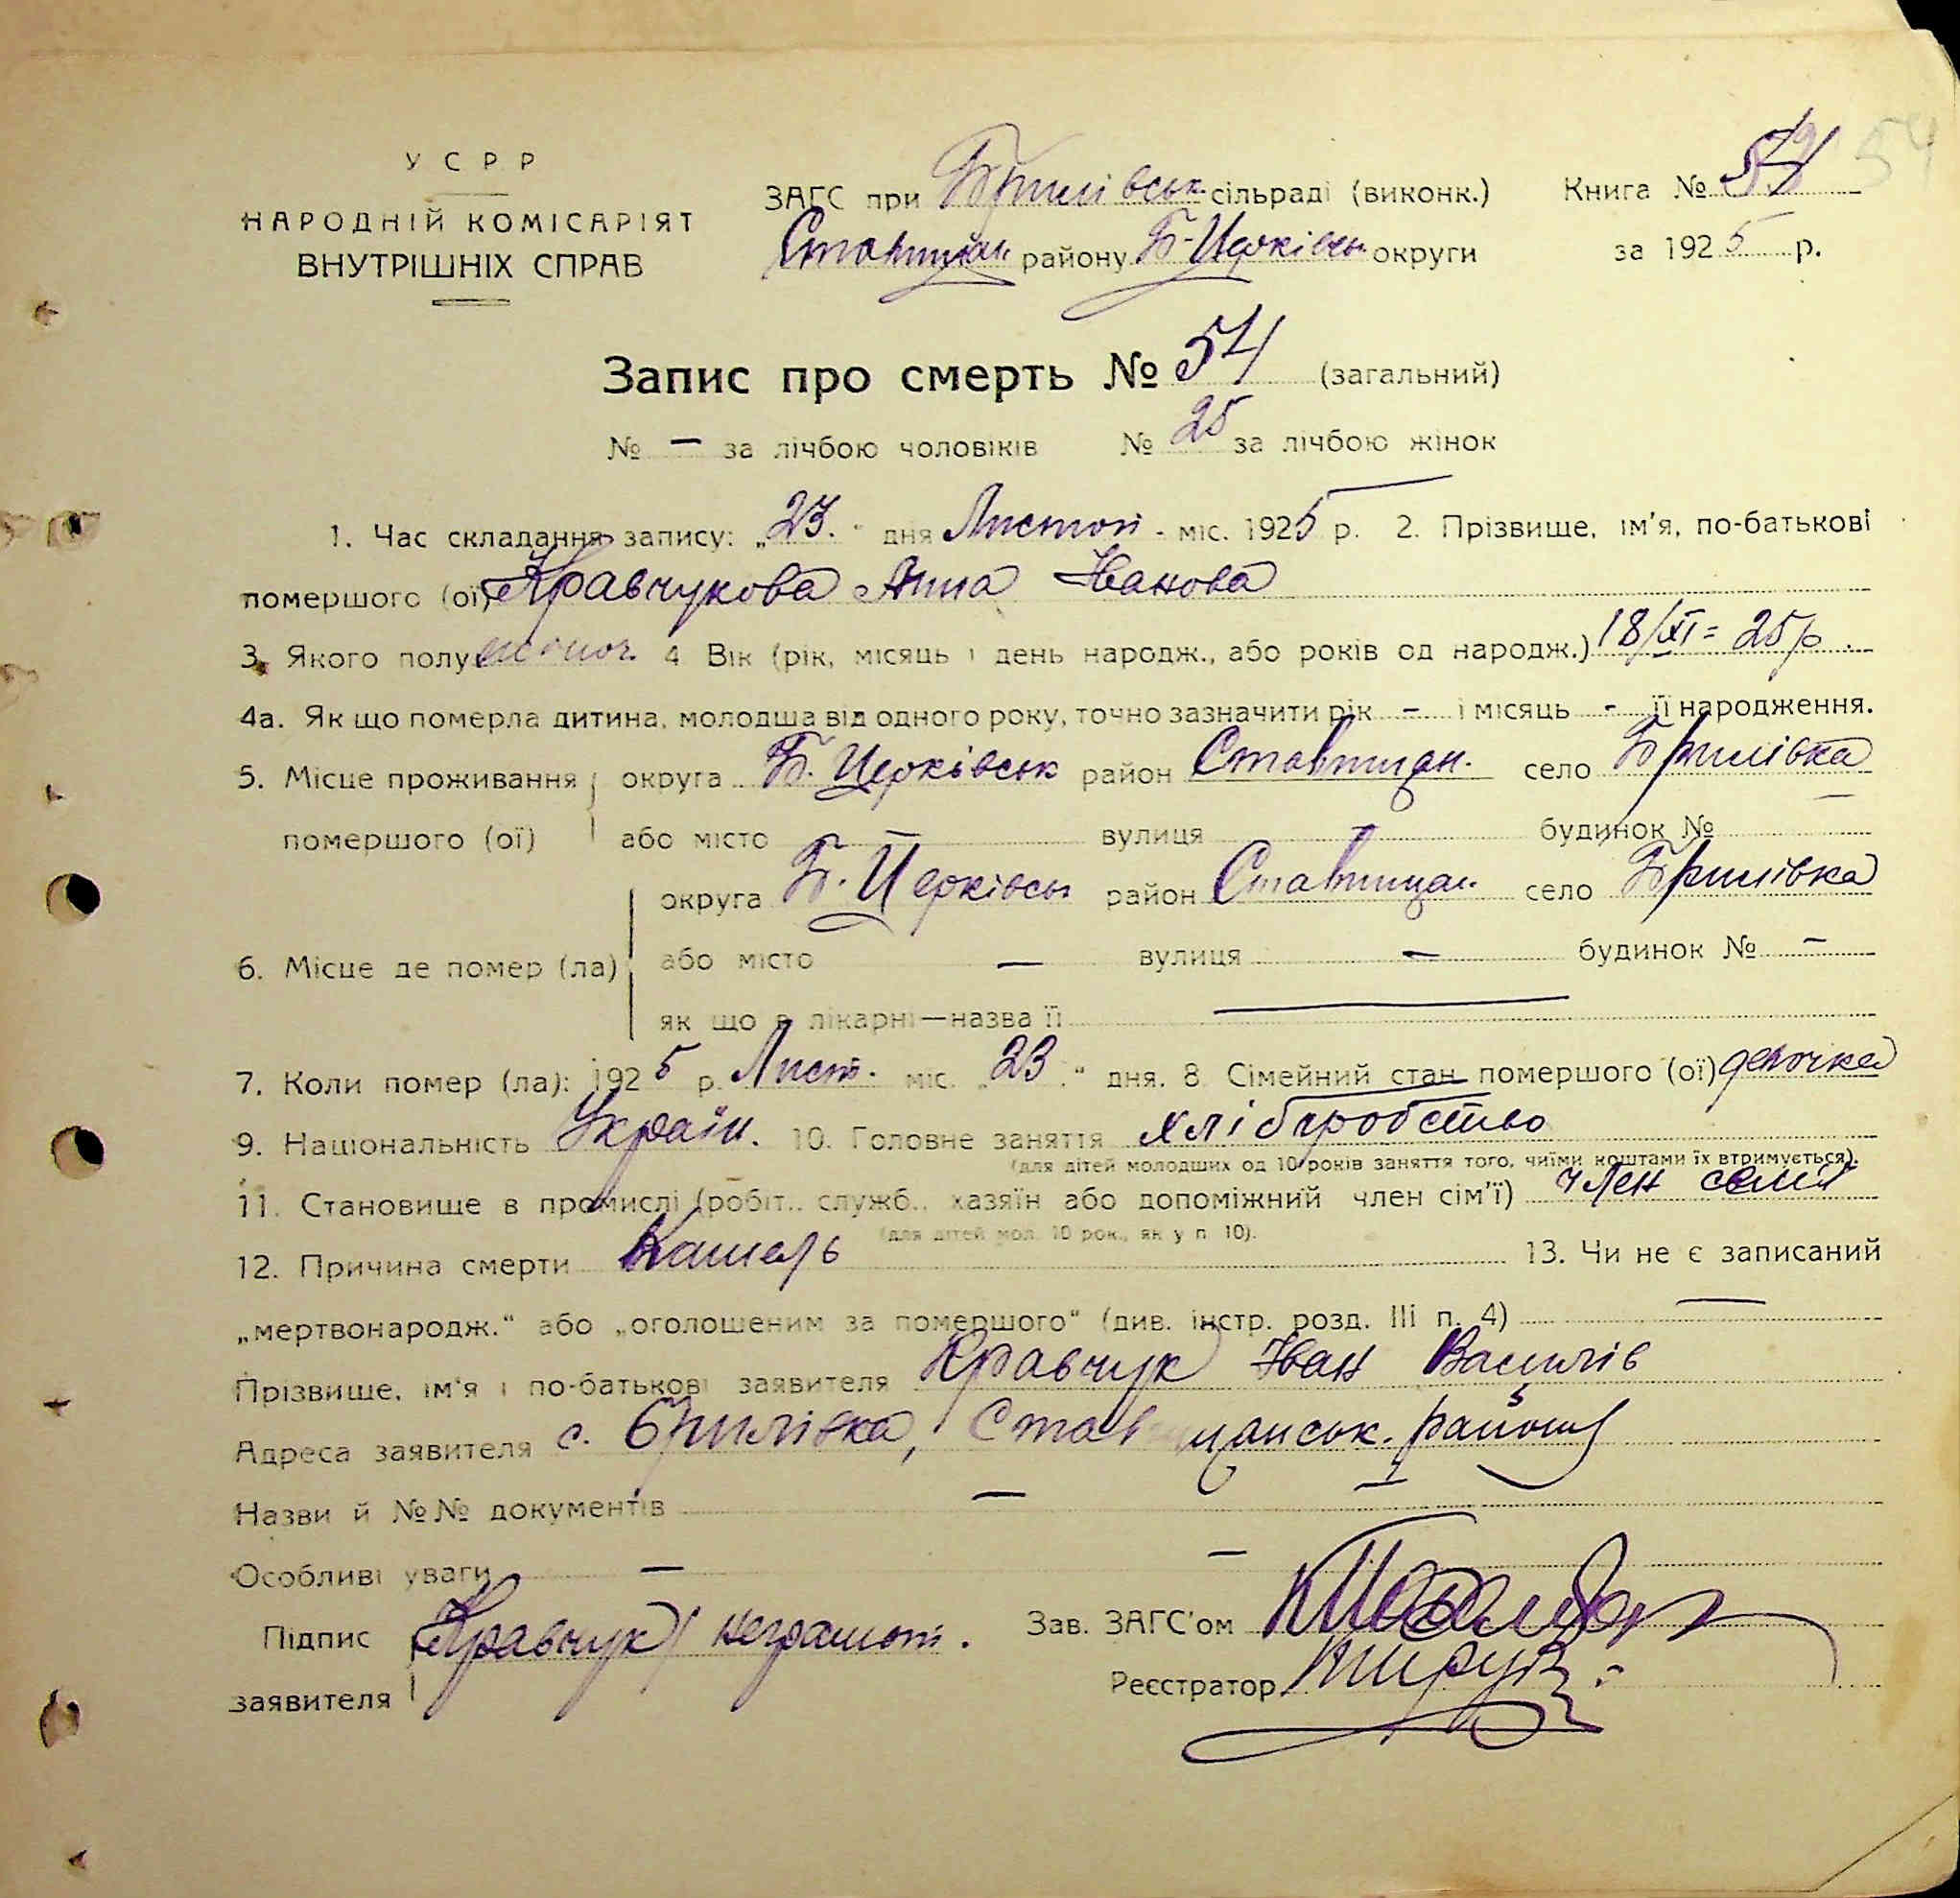 У С Р Р
НАРОДНІЙ КОМІСАРІЯТ
ВНУТРІШНІХ СПРАВ
ЗАГС при Брилівськ сільраді (виконк.)
Ставищан району Б-Церківськ округи
Книга № 54 54
за 1925 р.
Запис про смерть № 54 (загальний)
№ — за лічбою чоловіків № 25 за лічбою жінок
1. Час складання запису: „23." дня Листоп - міс. 1925 р. 2. Прізвище, ім'я, по-батькові
помершого (ої) Кравчукова Анна Іванова
3. Якого полу жіноч. 4 Вік (рік, місяць і день народж., або років од народж.) 18/XI = 25р.
4а. Як що померла дитина, молодша від одного року, точно зазначити рік - і місяць - її народження.
5. Місце проживання округа Б. Церківськ район Ставищан. село Брилівка
помершого (ої) або місто — вулиця — будинок № —
округа Б. Церківськ район Ставищан. село Брилівка
6. Місце де помер (ла) або місто — вулиця — будинок № —
як що в лікарні—назва її —
7. Коли помер (ла): 1925 р. Лист. міс. „23." дня. 8. Сімейний стан помершого (ої) девочка
9. Національність Україн. 10. Головне заняття хліборобство
(для дітей молодших од 10 років заняття того, чиїми коштами їх втримується).
11. Становище в промислі (робіт., служб., хазяїн або допоміжний член сім'ї) член семії
(для дітей мол. 10 рок., як у п. 10).
12. Причина смерти Кашель 13. Чи не є записаний
„мертвонародж." або „оголошеним за помершого" (див. інстр. розд. III п. 4) —
Прізвище, ім'я і по-батькові заявителя Кравчук Іван Василів
Адреса заявителя с. Брилівка, Ставищанськ. району
Назви й №№ документів —
Особливі уваги — —
Підпис Кравчук неграмотн. Зав. ЗАГС'ом
заявителя Реєстратор